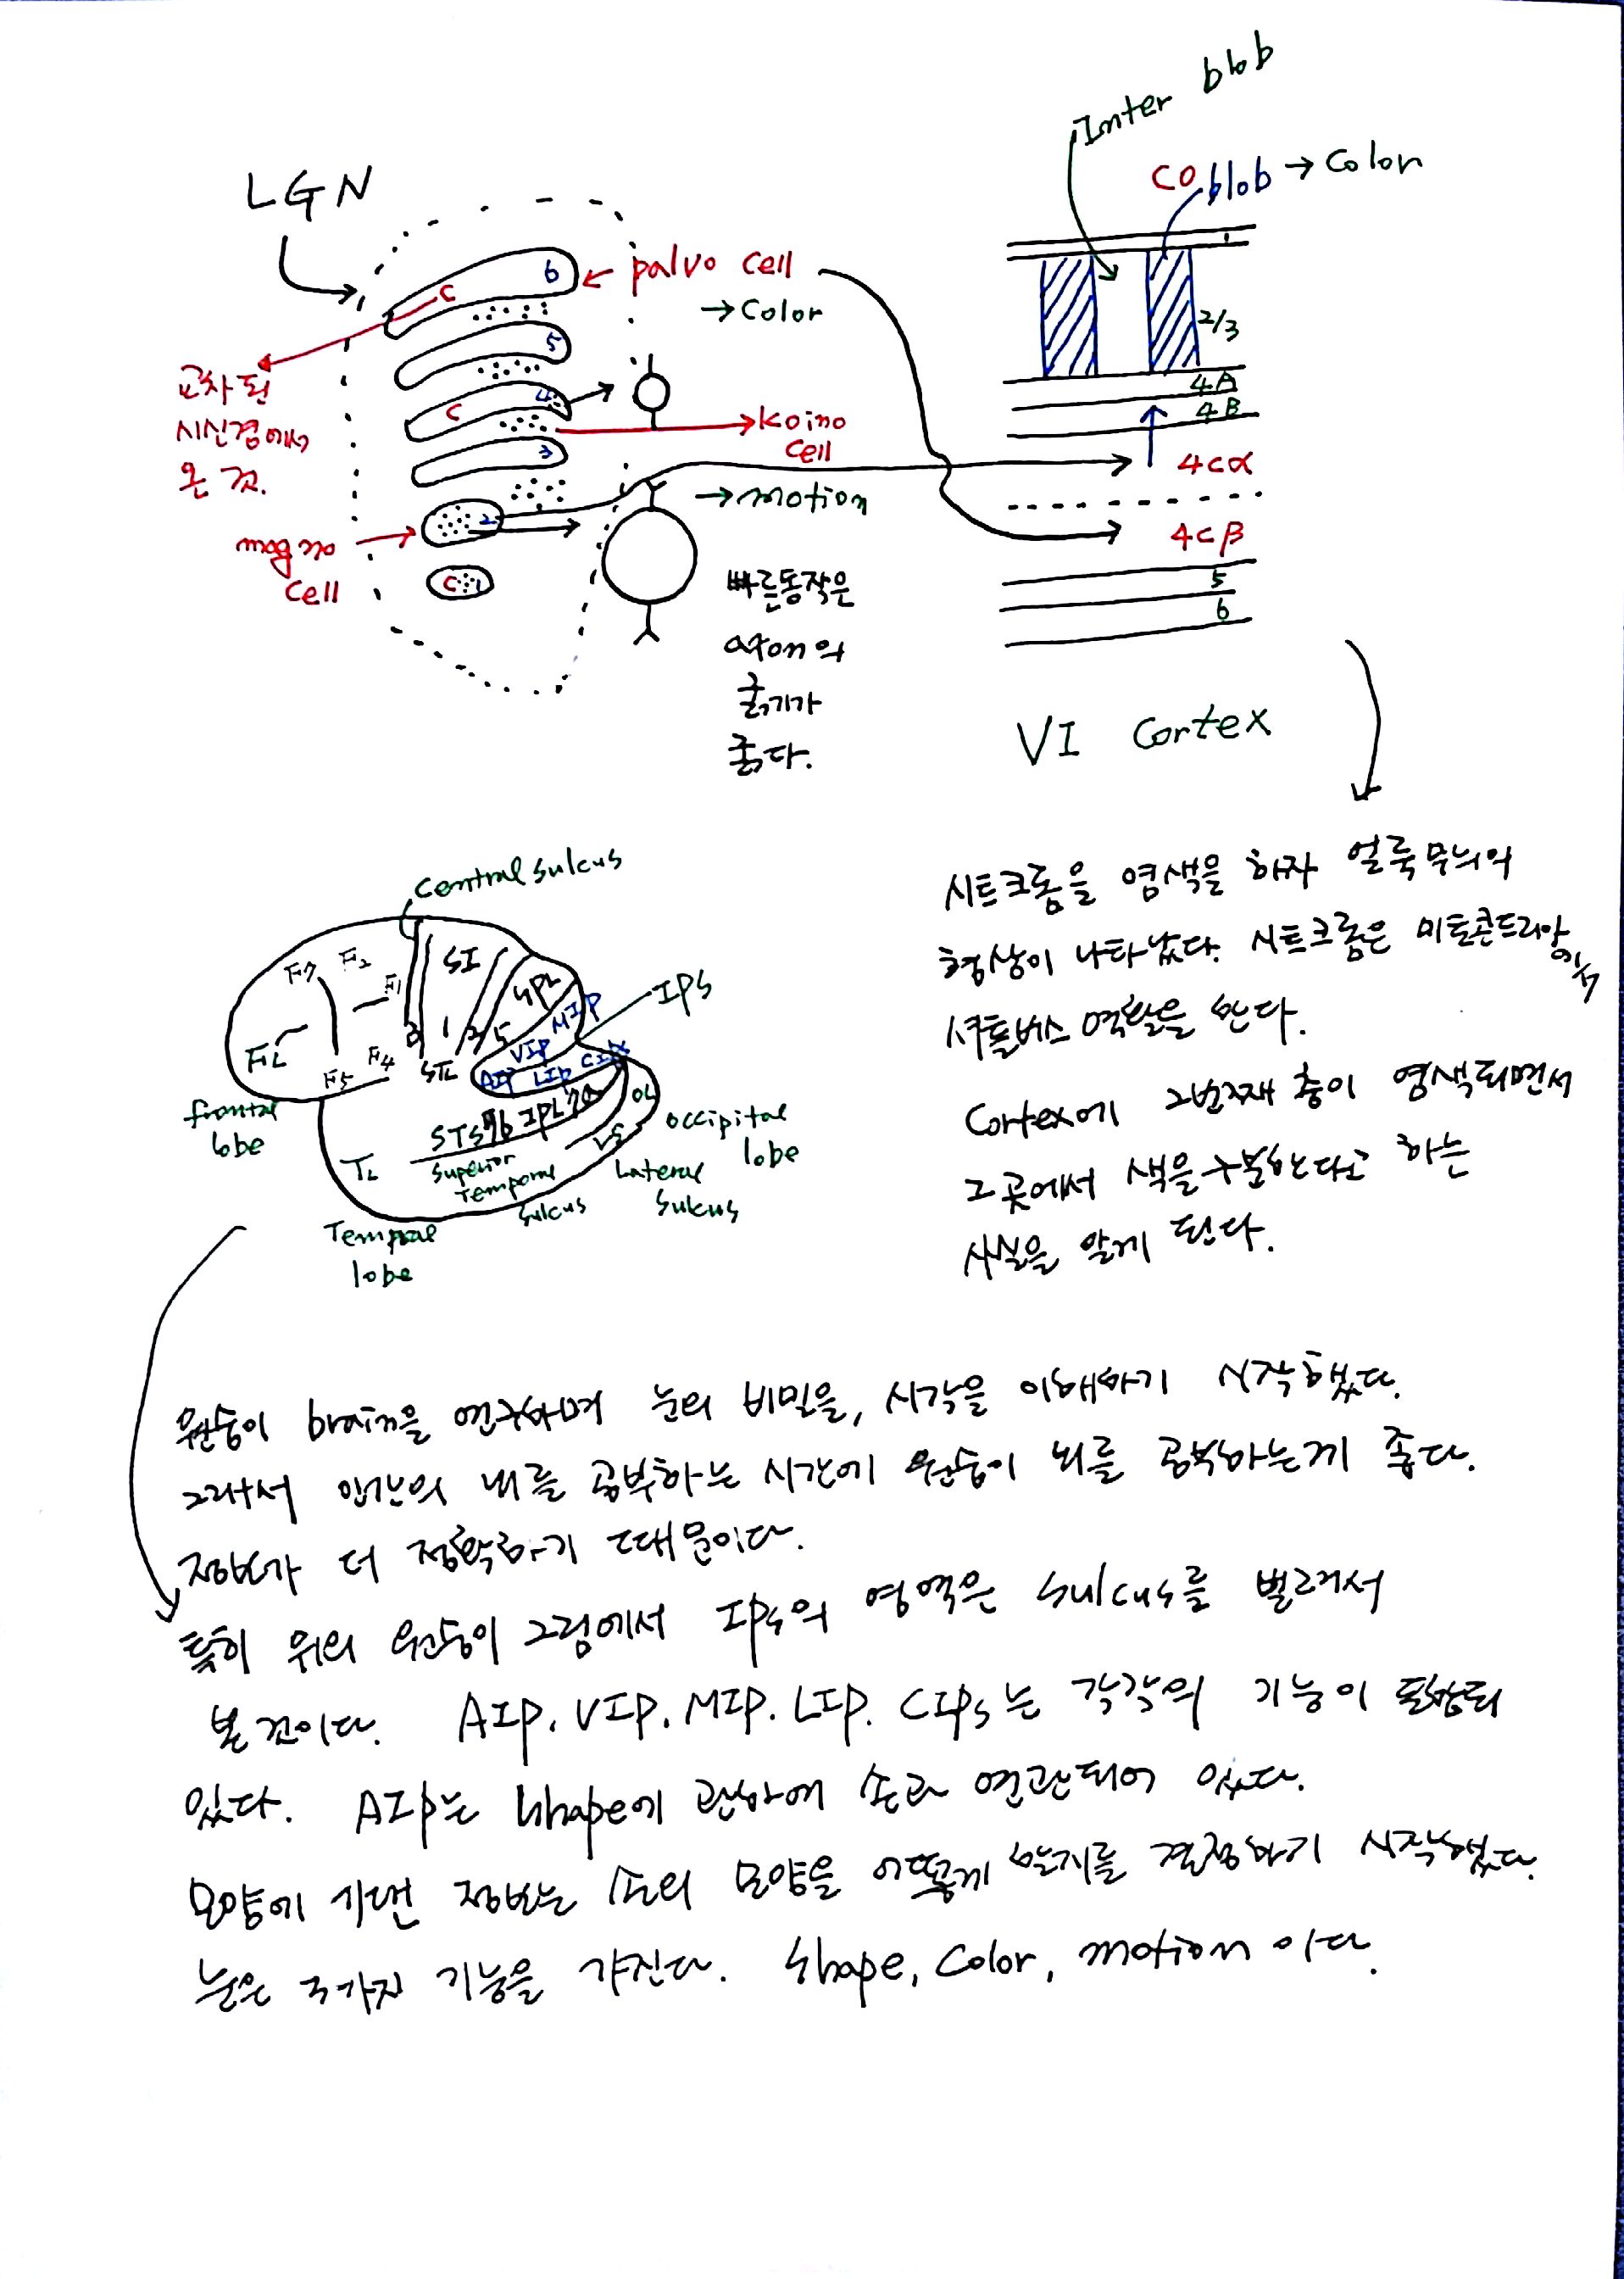 Inter blob
LGN
CO blob → Color
1
6
palvo cell
→ Color
C
5
2/3
교차된
시신경에서
온 것.
4
C
koino
cell
4A
4B
3
4Cα
→ motion
2
magno
cell
4Cβ
C 1
5
6
빠른동작은
axon의
굵기가
굵다.
VI Cortex
central sulcus
시트크롬을 염색을 하자 얼룩무늬의
형상이 나타났다. 시트크롬은 미토콘드리아에서
셔틀버스 역할을 한다.
F7 F2 F1
SI
SPL
MIP
IPS
3 1 2 5
VIP
FEF
F5 F4
AIP LIP CIPS
frontal
lobe
STS 7b IPL 7a
OL
LS
occipital
lobe
TL
Superior
Temporal
sulcus
Lateral
sulcus
Tempral
lobe
Cortex에 2번째 층이 염색되면서
그 곳에서 색을 구분한다고 하는
사실을 알게 된다.
원숭이 brain을 연구하며 눈의 비밀을, 시각을 이해하기 시작했다.
그래서 인간의 뇌를 공부하는 시간에 원숭이 뇌를 공부하는게 좋다.
정보가 더 정확하기 때문이다.
특히 위의 원숭이 그림에서 IPS의 영역은 sulcus를 벌려서
본 것이다. AIP. VIP. MIP. LIP. CIPS는 각각의 기능이 포함되
있다. AIP는 shape에 관하여 손과 연관되어 있다.
모양에 기댄 정보는 손의 모양을 어떻게 할지를 결정하기 시작했다.
눈은 3가지 기능을 가진다. shape, color, motion 이다.